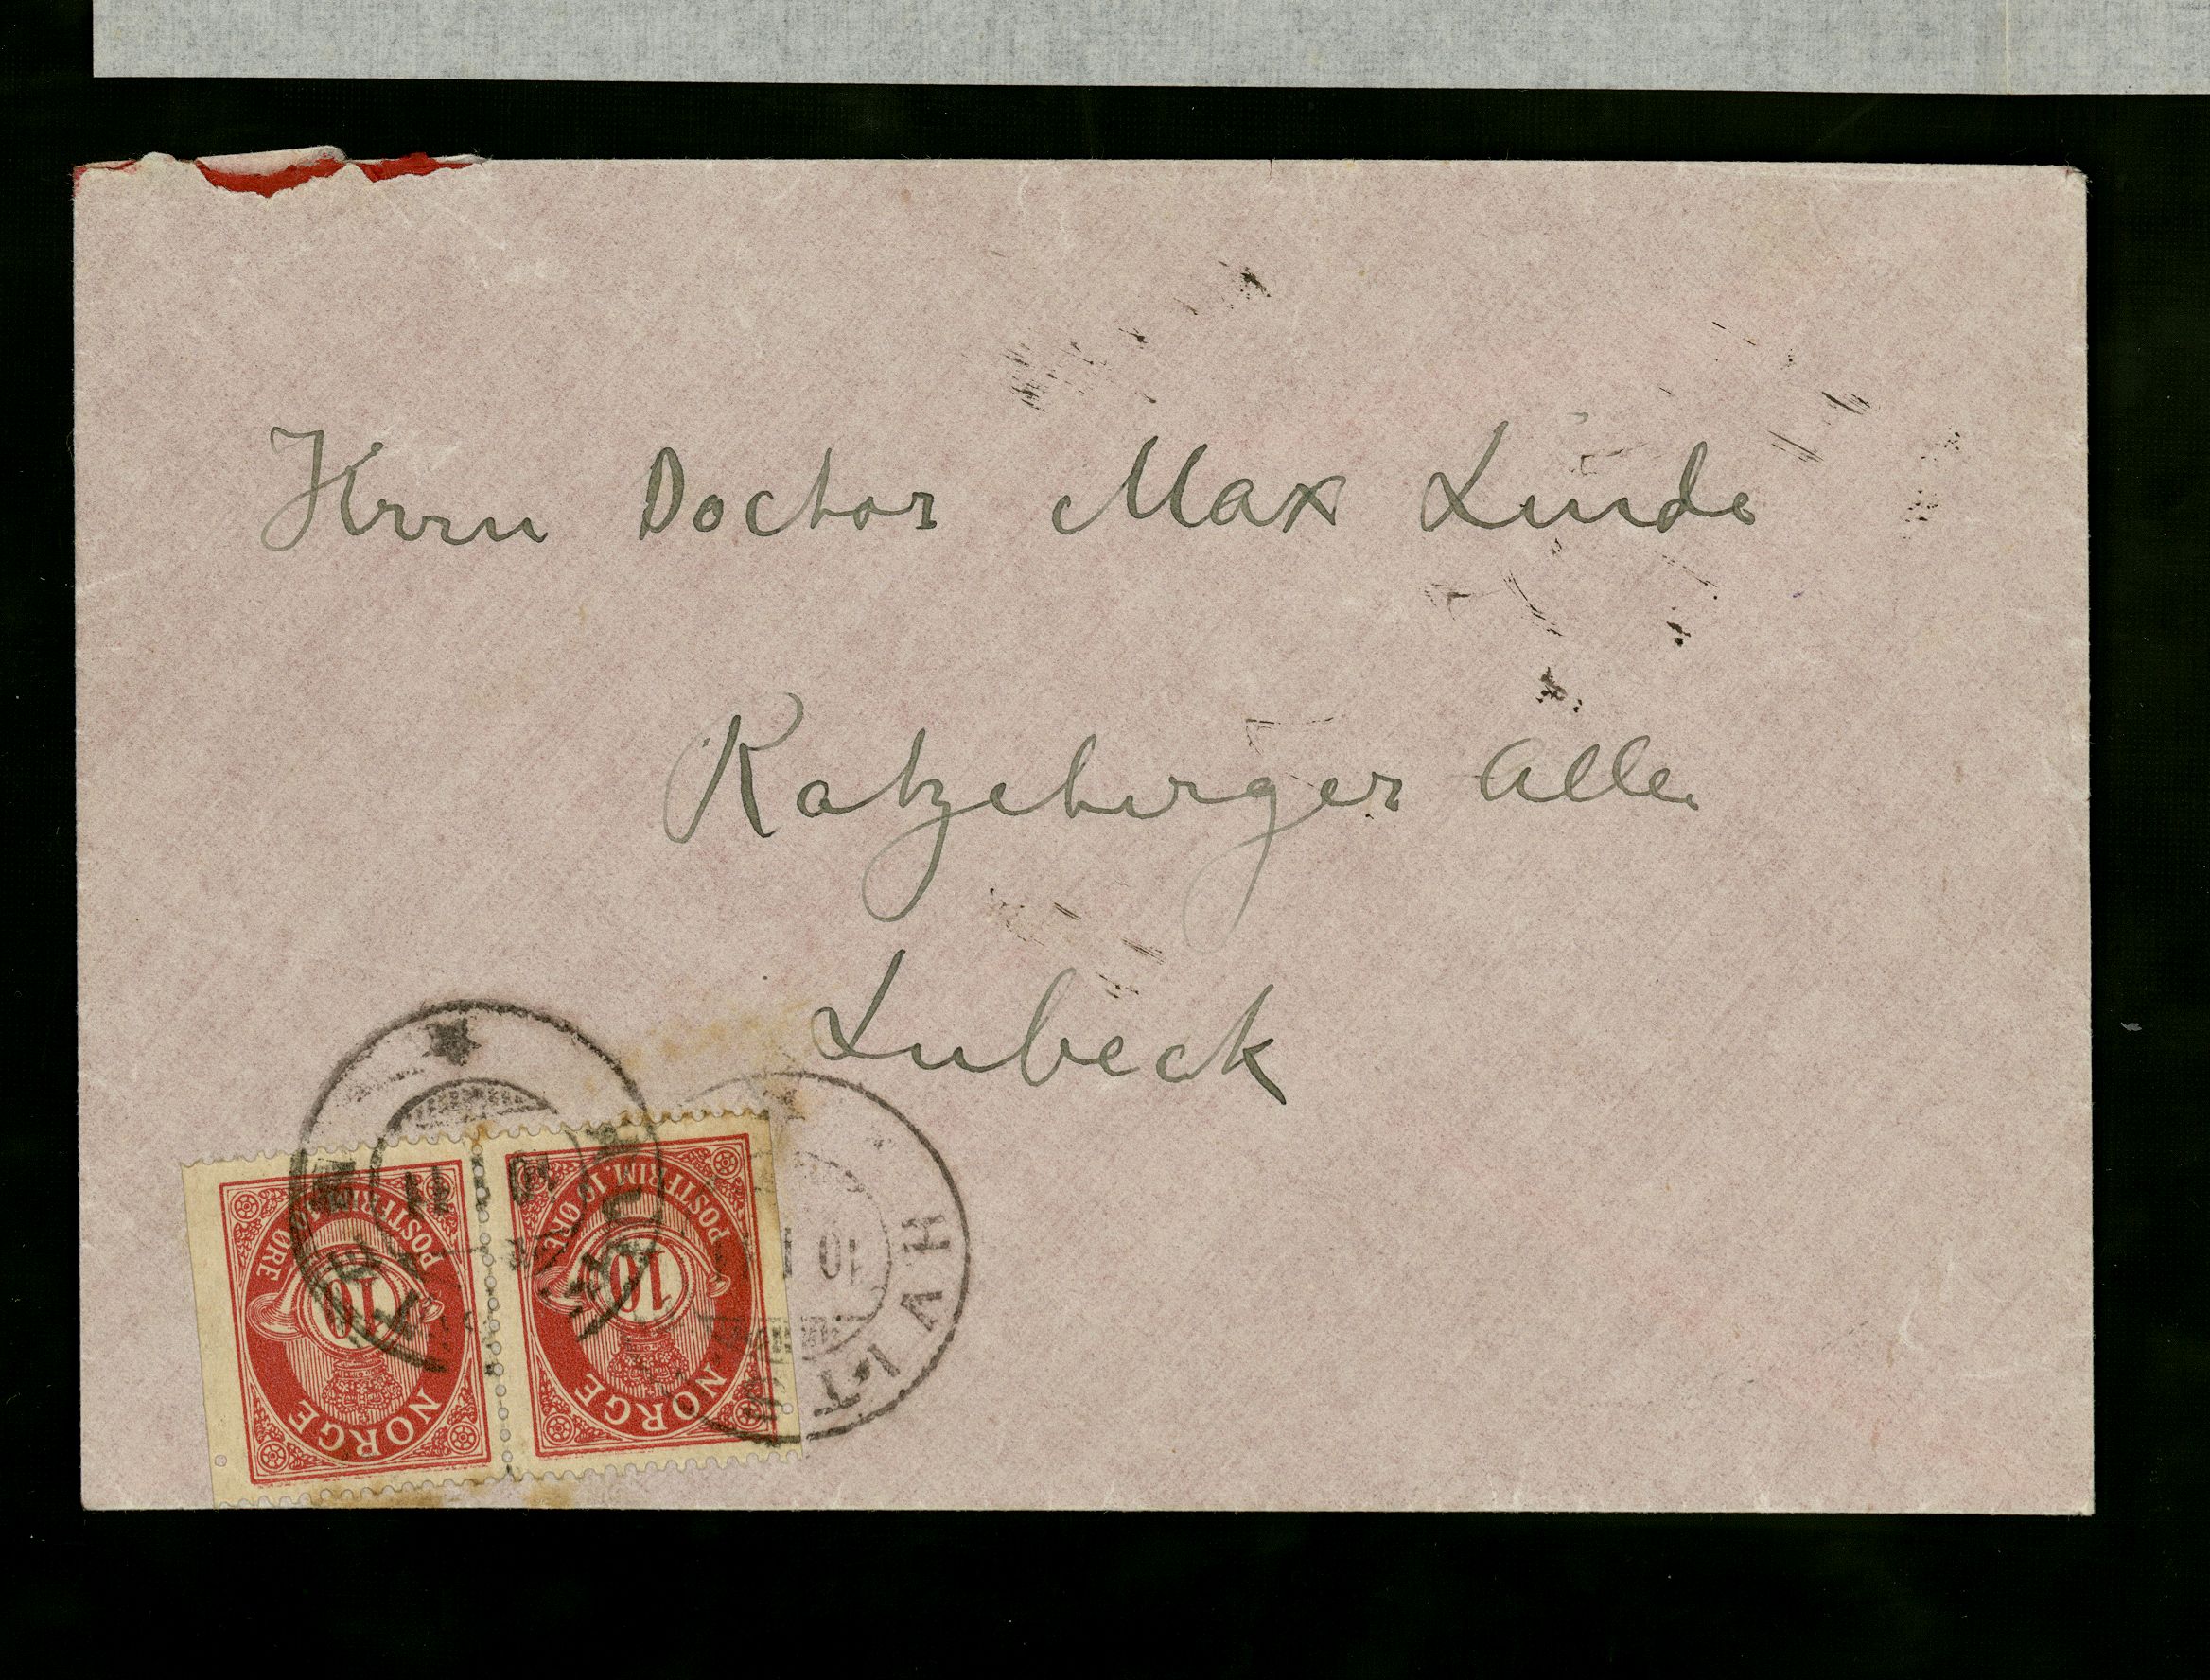 Herrn Doctor Max Linde
Ratzeburger Allee
Lubeck
POSTFRIM. 10 ØRE
10
NORGE
POSTFRIM. 10 ØRE
10
NORGE
HVIT
10